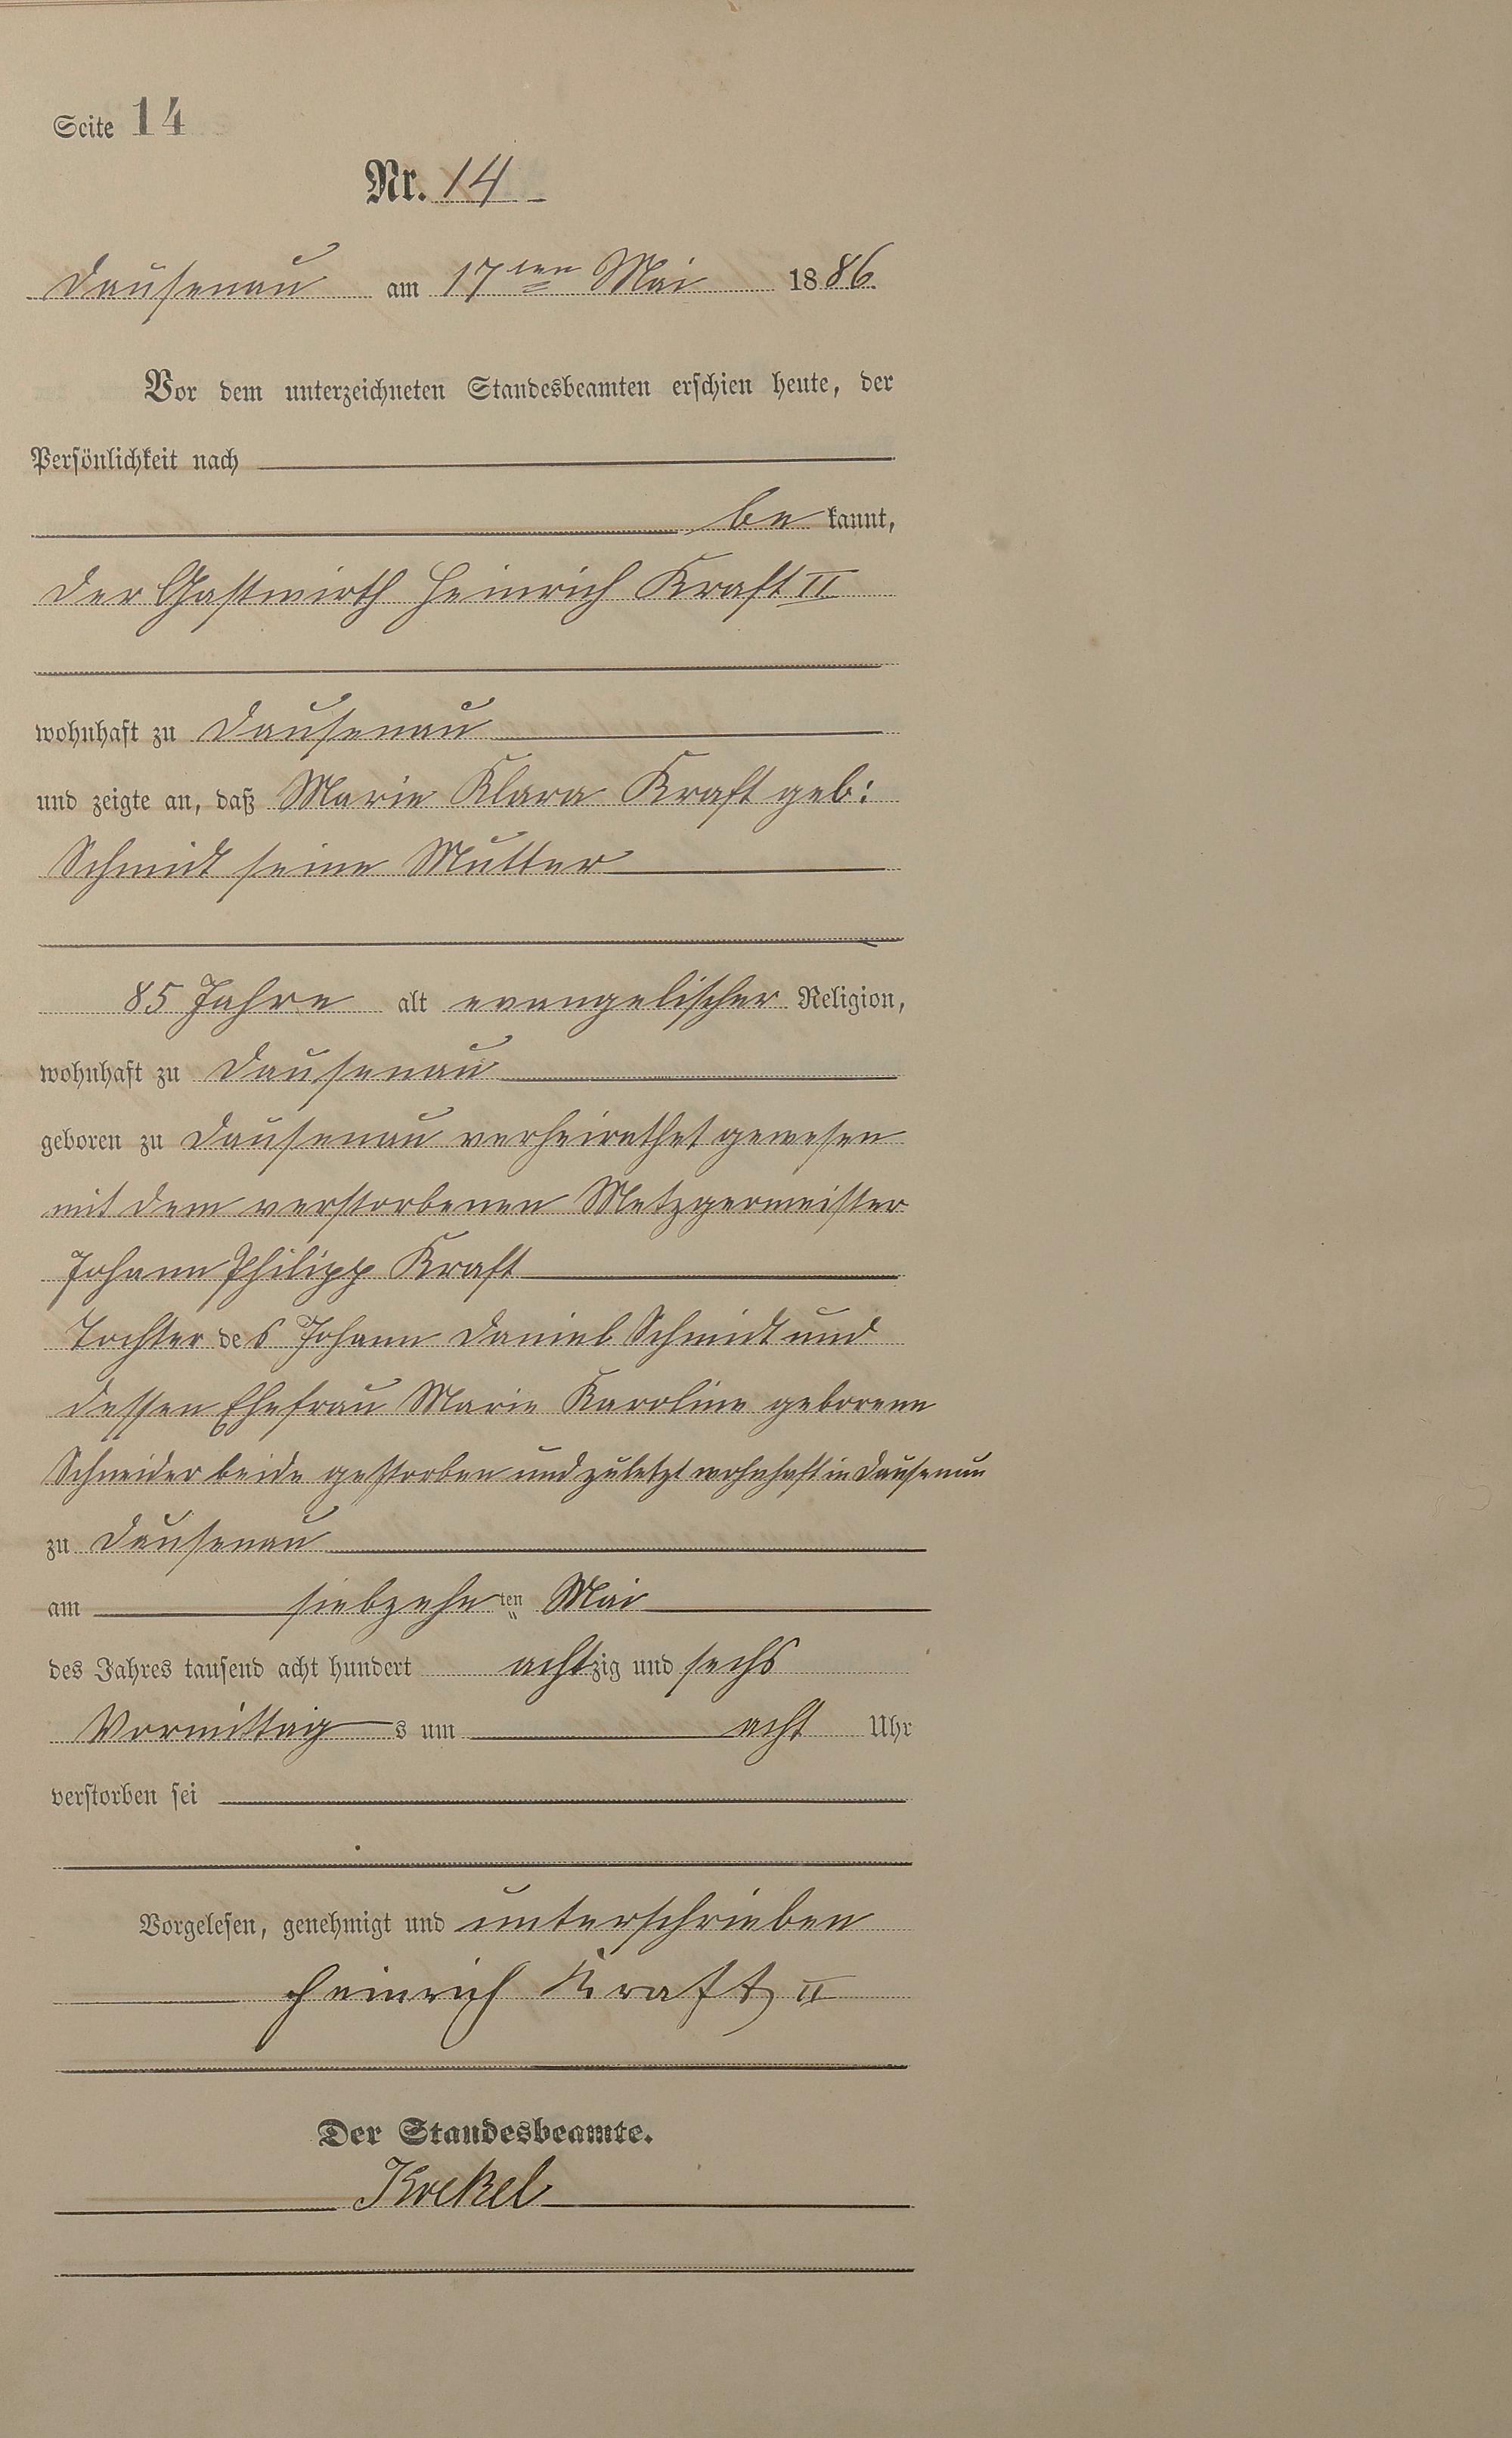 Seite 14
Nr. 14
Dausenau am 17ten Mai 1886.
Vor dem unterzeichneten Standesbeamten erschien heute, der
Persönlichkeit nach
be kannt,
der Gastwirth Heinrich Kraft II
wohnhaft zu Dausenau
und zeigte an, daß Marie Klara Kraft geb:
Schmidt seine Mutter
85 Jahre alt evangelischer Religion,
wohnhaft zu Dausenau
geboren zu Dausenau verheirathet gewesen
mit dem verstorbenen Metzgermeister
Johann Philipp Kraft
Tochter des Johann Daniel Schmidt und
dessen Ehefrau Marie Karoline geborene
Schneider beide gestorben und zuletzt wohnhaft in Dausenau
zu Dausenau
am siebzehnten Mai
des Jahres tausend acht hundert achtzig und sechs
Vormittags um acht Uhr
verstorben sei
Vorgelesen, genehmigt und unterschrieben
Heinrich Kraft II
Der Standesbeamte.
Krekel